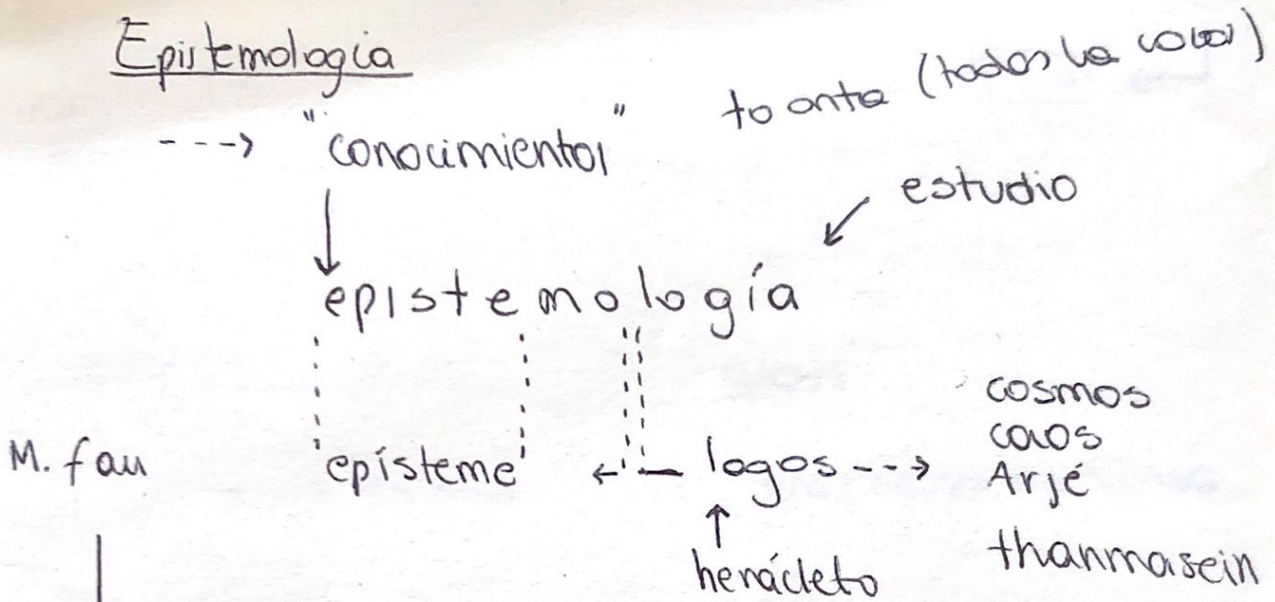 Epistemología
---> "conocimiento"
to onta (todas la cosas)
estudio
epistemología
M. fau
'epísteme'
logos
cosmos
caos
Arjé
herácleto
thanmasein